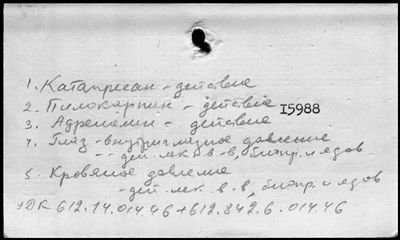 1. Катапресан - действие
2. Пилокарпин - действие I5988
3. Адреналин - действие
4. Глаз - внутриглазное давление
-- дей. лек. в-в, биопр. и ядов
5. Кровяное давление
- дей. лек. в-в, биопр. и ядов
612.14.014.46+612.842.6.014.46